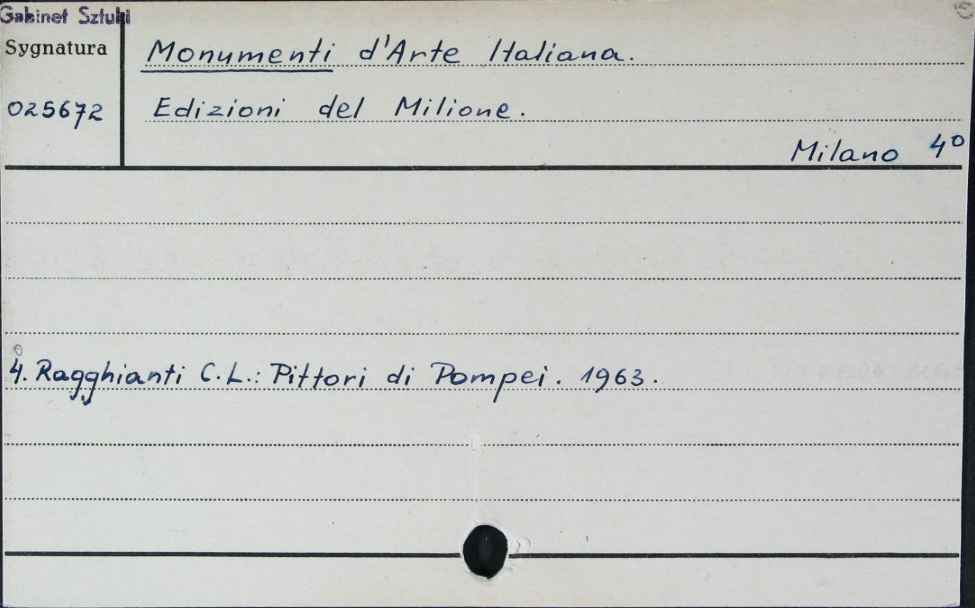 Gabinet Sztuki
Sygnatura
025672
Monumenti d'Arte Italiana.
Edizioni del Milione.
Milano 4°
4. Ragghianti C.L.: Pittori di Pompei. 1963.